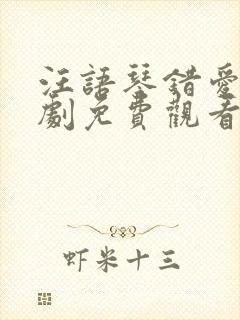 汪語琴錯愛
劇免費觀看
虾米十三